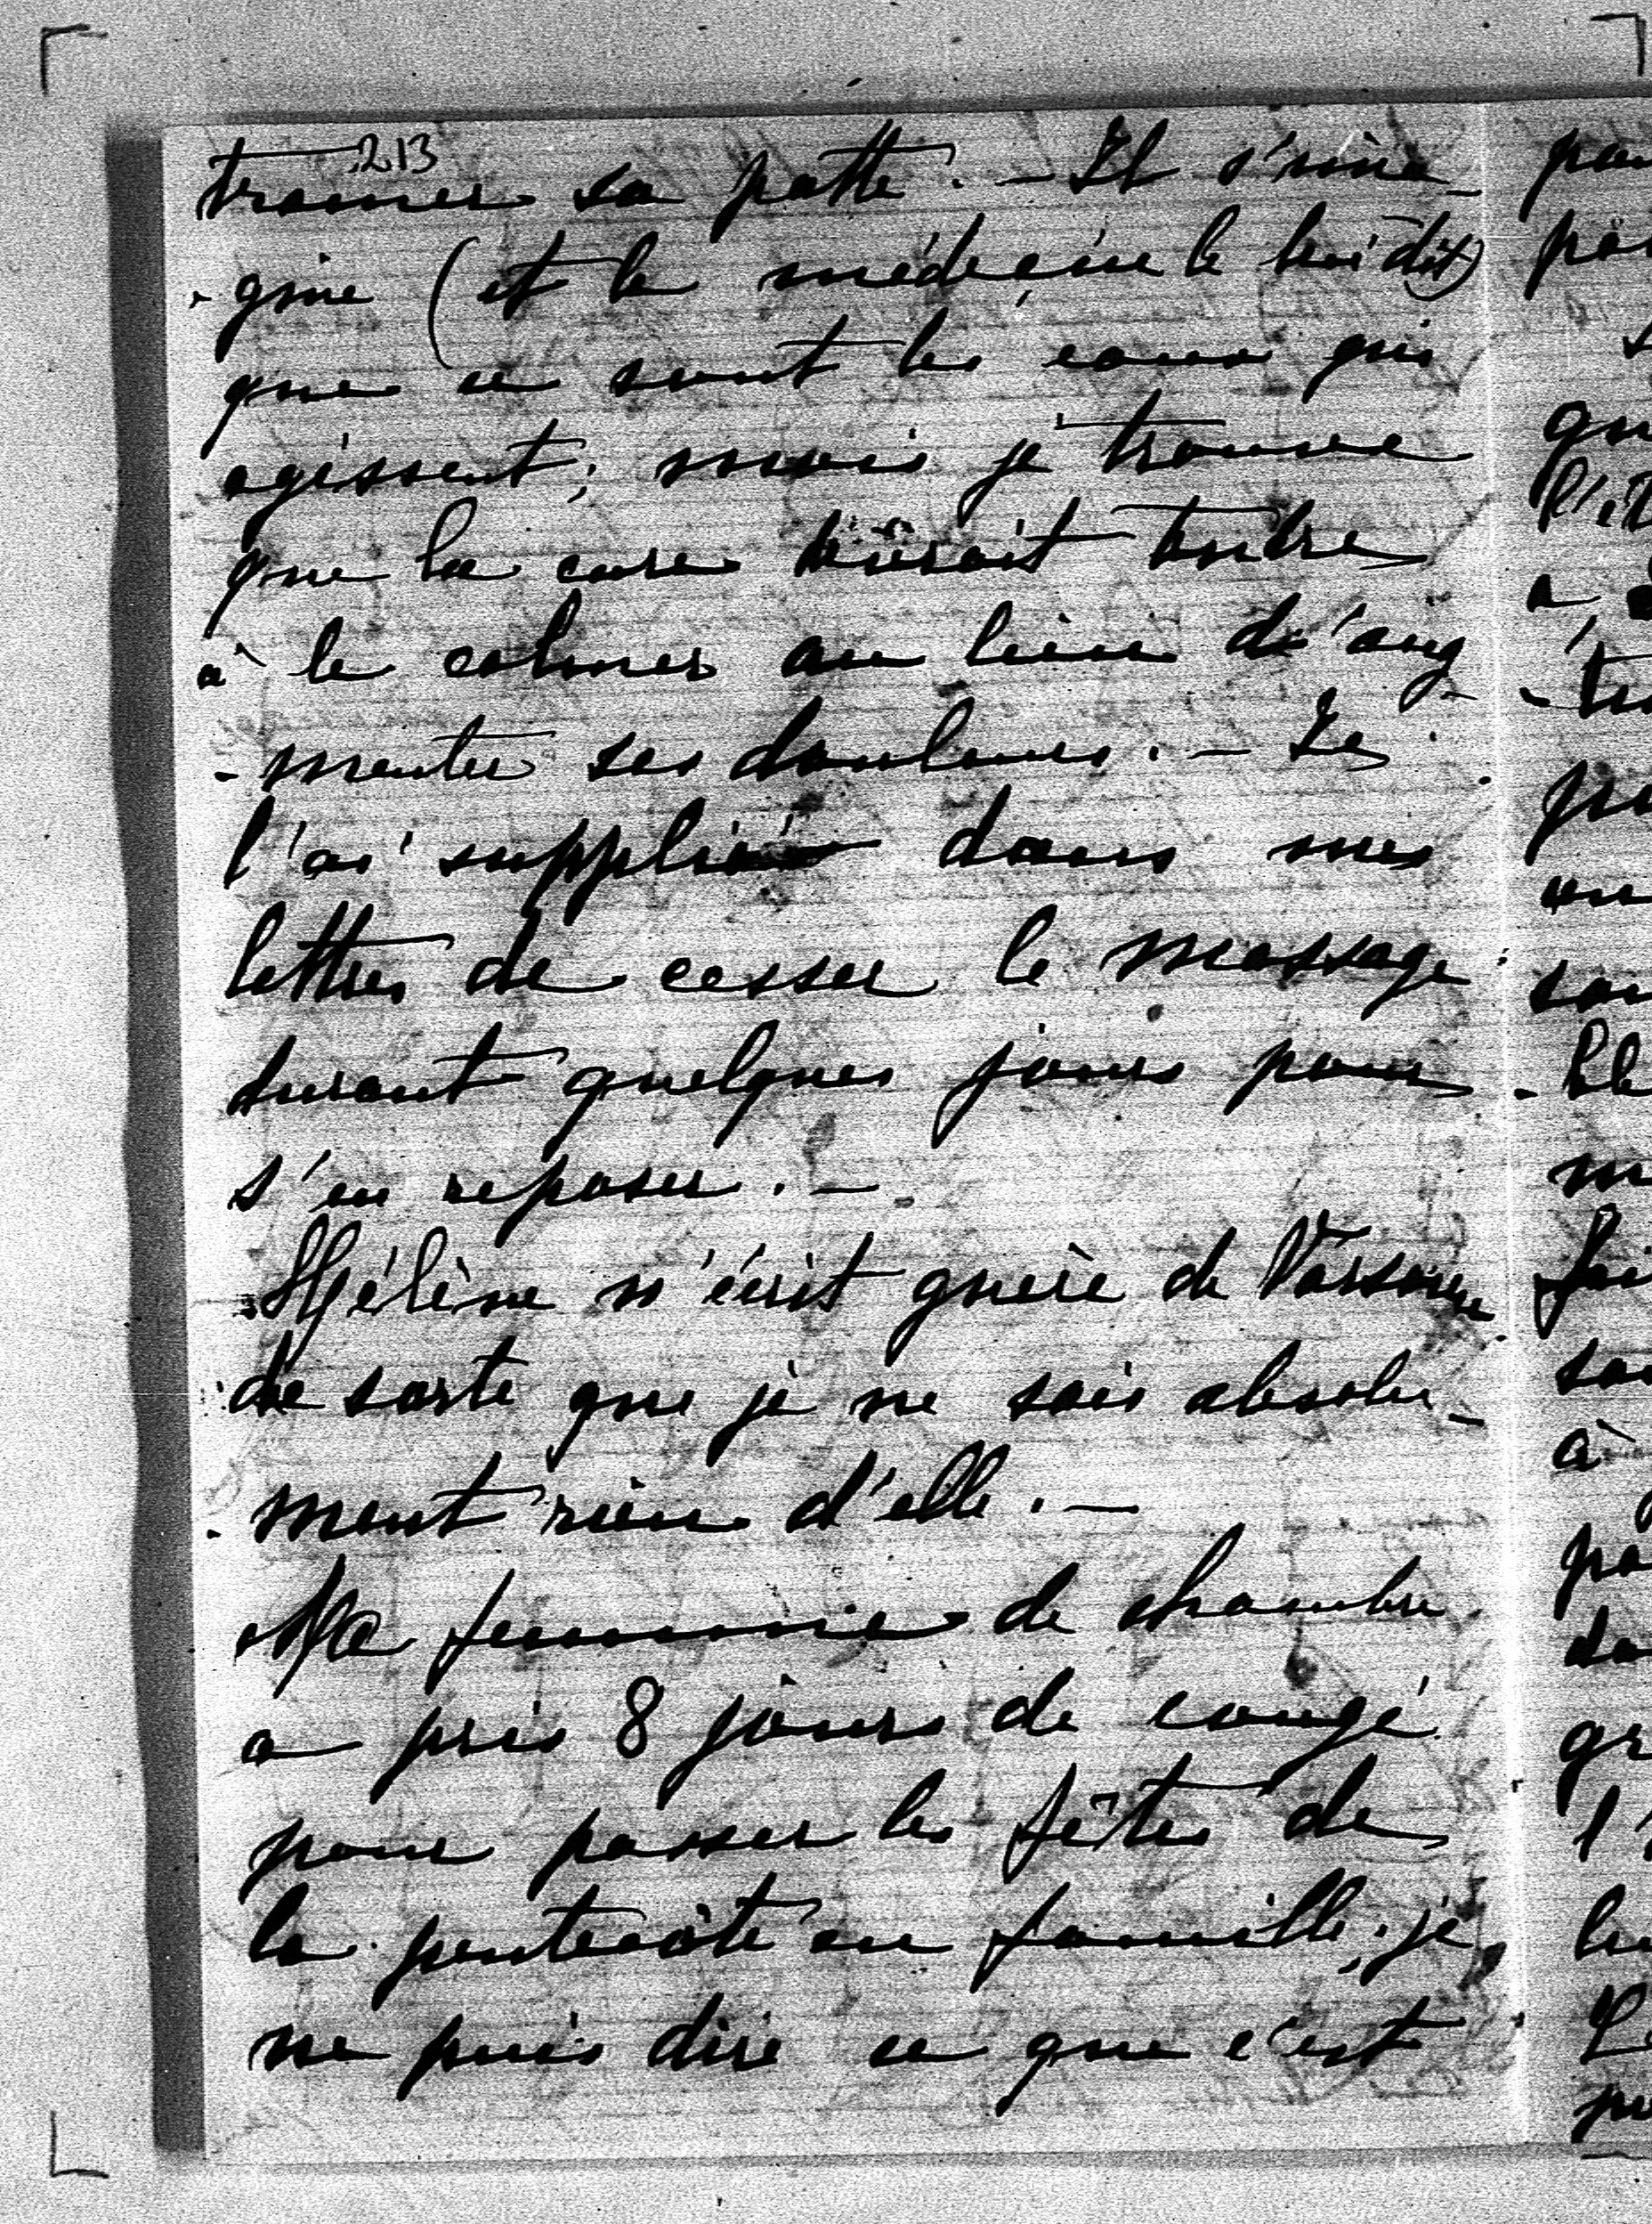 213
trainer sa patte. — Il s'ima-
-gine (et le médecin le lui dit)
que ce sont les eaux qui
agissent; mais je trouve
que la cure devrait tendre
à le calmer au lieu d'aug-
-menter ses douleurs. — Je
l'ai supplié dans mes
lettres de cesser le massage
durant quelques jours pour
s'en reposer. —
Hélène n'écrit guère de Varsovie
de sorte que je ne sais absolu-
-ment rien d'elle. —
Ma femme de chambre
a pris 8 jours de congé
pour passer les fêtes de
la pentecôte en famille; je
ne puis dire ce que c'est